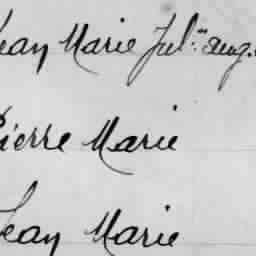 Jean Marie Jul.en aug.
Pierre Marie
Jean Marie